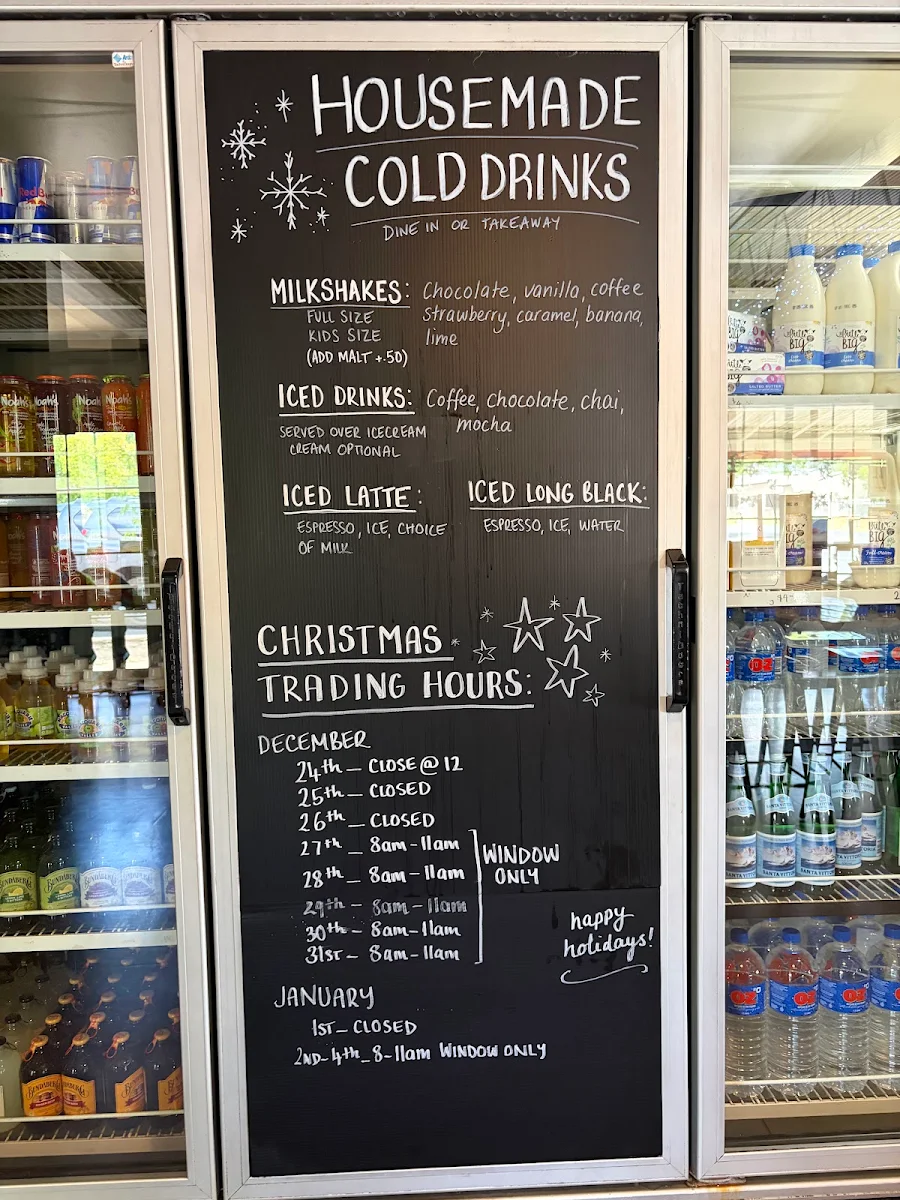 HOUSEMADE
COLD DRINKS
DINE IN OR TAKEAWAY
MILKSHAKES:
FULL SIZE
KIDS SIZE
(ADD MALT +.50)
Chocolate, vanilla, coffee
strawberry, caramel, banana,
lime
ICED DRINKS:
SERVED OVER ICECREAM
CREAM OPTIONAL
Coffee, chocolate, chai,
mocha
ICED LATTE:
ESPRESSO, ICE, CHOICE
OF MILK
ICED LONG BLACK:
ESPRESSO, ICE, WATER
CHRISTMAS
TRADING HOURS:
DECEMBER
24th - CLOSE @ 12
25th - CLOSED
26th - CLOSED
27th - 8am-11am
28th - 8am-11am
29th - 8am-11am
30th - 8am-11am
31ST - 8am-11am
WINDOW
ONLY
happy
holidays!
JANUARY
1ST - CLOSED
2ND-4th - 8-11am WINDOW ONLY
Red Bull
Noah's
Noah's
Noah's
Noah's
BUNDABERG
BUNDABERG
BUNDABERG
BIG
BIG
OZ
OZ
SANTA VITTORIA
SANTA VITTORIA
SANTA VITTORIA
OZ
OZ
OZ
OZ